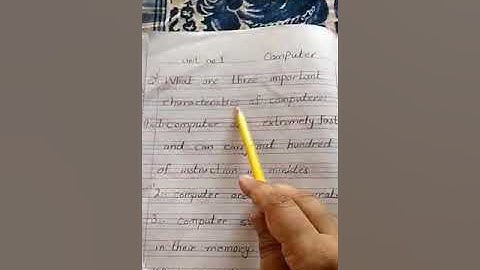 unit no 1 Computer
Q What are three important
characteristics of computer
1. computer extremely fast
and can carry out hundred
of instruction in minites
2. computer are
3. computer
in their memory